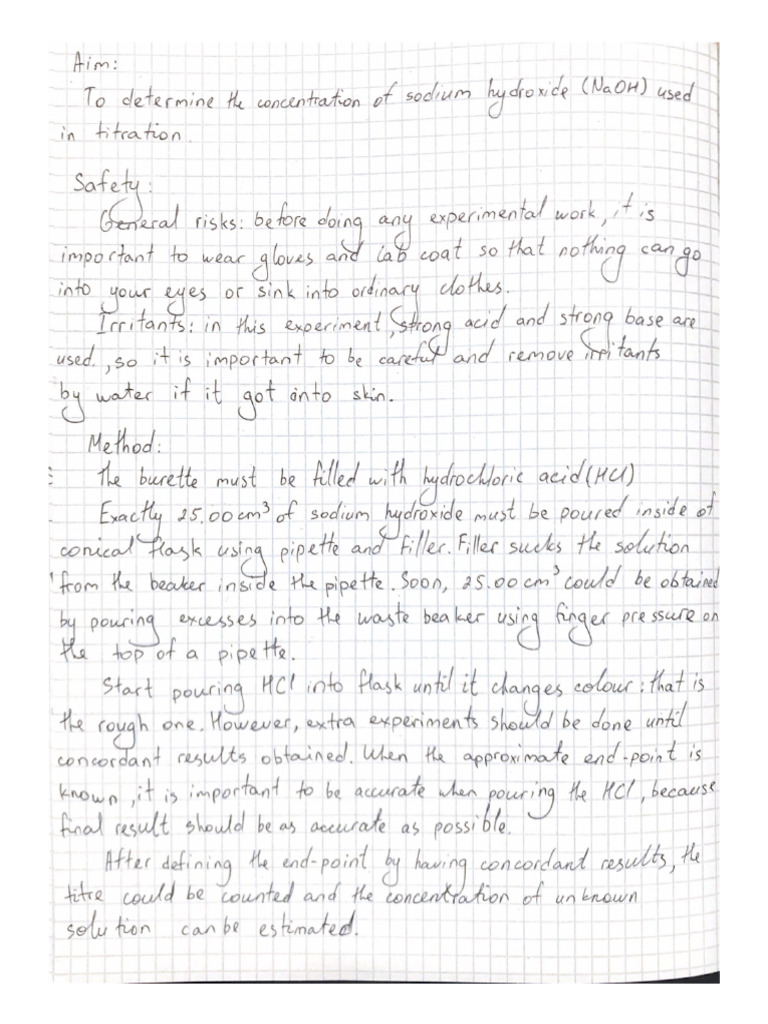 Aim:
To determine the concentration of sodium hydroxide (NaOH) used
in titration.
Safety:
General risks: before doing any experimental work, it is
important to wear gloves and lab coat so that nothing can go
into your eyes or sink into ordinary clothes.
Irritants: in this experiment, strong acid and strong base are
used, so it is important to be careful and remove irritants
by water if it got onto skin.
Method:
The burette must be filled with hydrochloric acid (HCl)
Exactly 25.00cm³ of sodium hydroxide must be poured inside of
conical flask using pipette and filler. Filler sucks the solution
from the beaker inside the pipette. Soon, 25.00 cm³ could be obtained
by pouring excesses into the waste beaker using finger pressure on
the top of a pipette.
Start pouring HCl into flask until it changes colour: that is
the rough one. However, extra experiments should be done until
concordant results obtained. When the approximate end-point is
known, it is important to be accurate when pouring the HCl, because
final result should be as accurate as possible.
After defining the end-point by having concordant results, the
titre could be counted and the concentration of unknown
solution can be estimated.